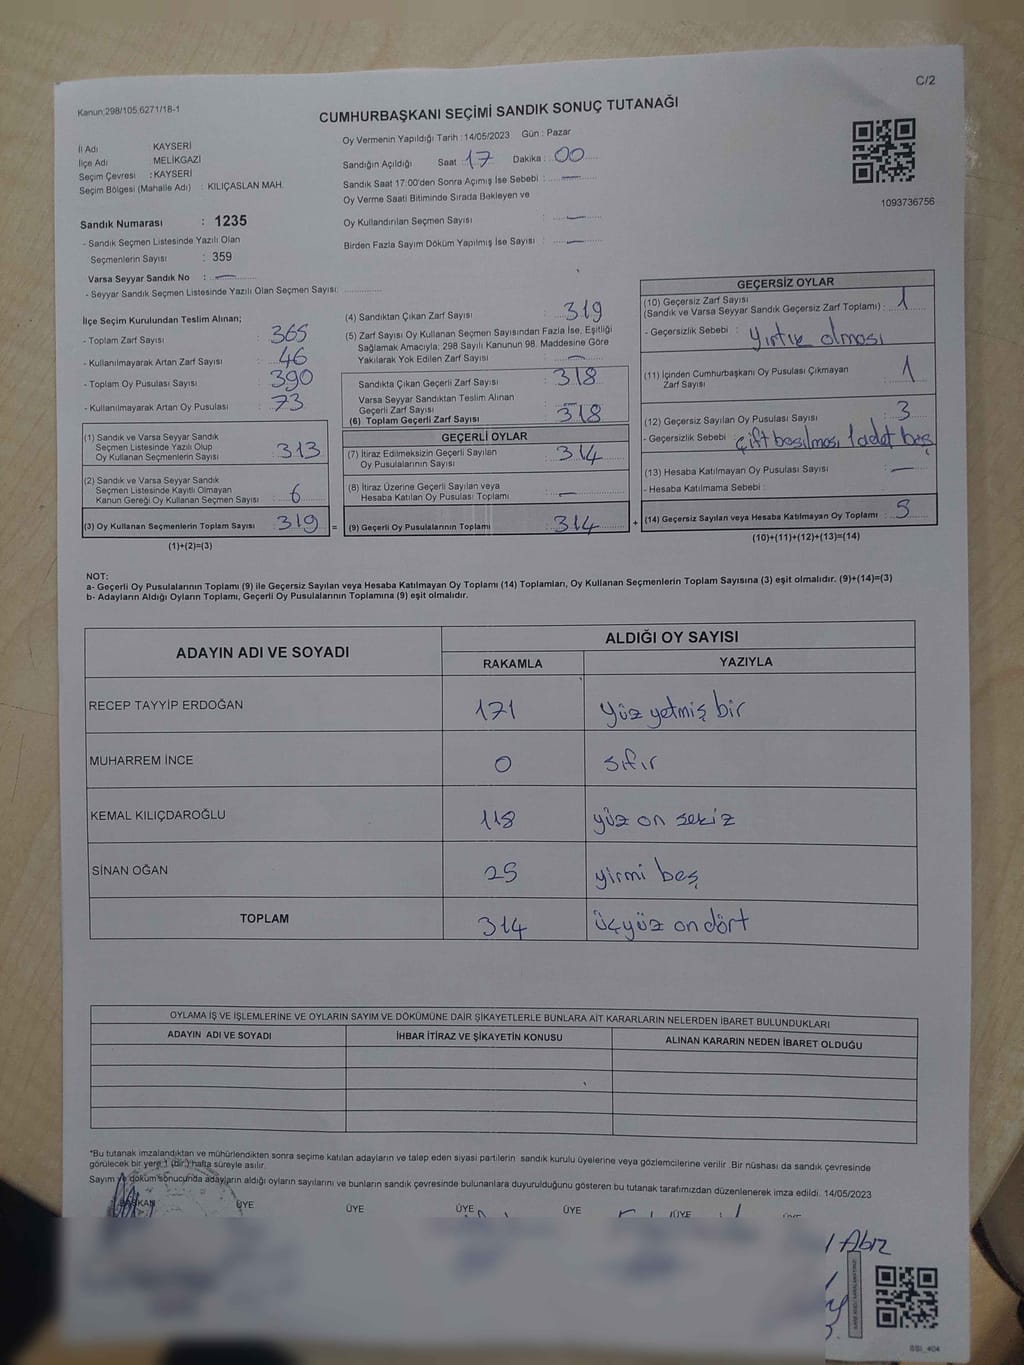 C/2
Kanun:298/105;6271/18-1
CUMHURBAŞKANI SEÇİMİ SANDIK SONUÇ TUTANAĞI
İl Adı KAYSERİ
İlçe Adı MELİKGAZİ
Seçim Çevresi : KAYSERİ
Seçim Bölgesi (Mahalle Adı) : KILIÇASLAN MAH.
Sandık Numarası : 1235
- Sandık Seçmen Listesinde Yazılı Olan
Seçmenlerin Sayısı : 359
Varsa Seyyar Sandık No : —
- Seyyar Sandık Seçmen Listesinde Yazılı Olan Seçmen Sayısı:
Oy Vermenin Yapıldığı Tarih : 14/05/2023 Gün : Pazar
Sandığın Açıldığı Saat 17 Dakika : 00
Sandık Saat 17:00'den Sonra Açımış İse Sebebi : —
Oy Verme Saati Bitiminde Sırada Bekleyen ve
Oy Kullandırılan Seçmen Sayısı : —
Birden Fazla Sayım Döküm Yapılmış İse Sayısı : —
1093736756
İlçe Seçim Kurulundan Teslim Alınan;
- Toplam Zarf Sayısı : 365
- Kullanılmayarak Artan Zarf Sayısı : 46
- Toplam Oy Pusulası Sayısı : 390
- Kullanılmayarak Artan Oy Pusulası : 73
(1) Sandık ve Varsa Seyyar Sandık
Seçmen Listesinde Yazılı Olup
Oy Kullanan Seçmenlerin Sayısı : 313
(2) Sandık ve Varsa Seyyar Sandık
Seçmen Listesinde Kayıtlı Olmayan
Kanun Gereği Oy Kullanan Seçmen Sayısı : 6
(3) Oy Kullanan Seçmenlerin Toplam Sayısı : 319 =
(1)+(2)=(3)
(4) Sandıktan Çıkan Zarf Sayısı : 319
(5) Zarf Sayısı Oy Kullanan Seçmen Sayısından Fazla İse, Eşitliği
Sağlamak Amacıyla; 298 Sayılı Kanunun 98. Maddesine Göre
Yakılarak Yok Edilen Zarf Sayısı : —
Sandıkta Çıkan Geçerli Zarf Sayısı : 318
Varsa Seyyar Sandıktan Teslim Alınan
Geçerli Zarf Sayısı : —
(6) Toplam Geçerli Zarf Sayısı : 318
GEÇERLİ OYLAR
(7) İtiraz Edilmeksizin Geçerli Sayılan
Oy Pusulalarının Sayısı : 314
(8) İtiraz Üzerine Geçerli Sayılan veya
Hesaba Katılan Oy Pusulası Toplamı : —
(9) Geçerli Oy Pusulalarının Toplamı : 314 +
GEÇERSİZ OYLAR
(10) Geçersiz Zarf Sayısı
(Sandık ve Varsa Seyyar Sandık Geçersiz Zarf Toplamı) : 1
- Geçersizlik Sebebi : Yırtık olması
(11) İçinden Cumhurbaşkanı Oy Pusulası Çıkmayan
Zarf Sayısı : 1
(12) Geçersiz Sayılan Oy Pusulası Sayısı : 3
- Geçersizlik Sebebi çift basılması 1 adet boş
(13) Hesaba Katılmayan Oy Pusulası Sayısı : —
- Hesaba Katılmama Sebebi :
(14) Geçersiz Sayılan veya Hesaba Katılmayan Oy Toplamı : 5
(10)+(11)+(12)+(13)=(14)
NOT:
a- Geçerli Oy Pusulalarının Toplamı (9) ile Geçersiz Sayılan veya Hesaba Katılmayan Oy Toplamı (14) Toplamları, Oy Kullanan Seçmenlerin Toplam Sayısına (3) eşit olmalıdır. (9)+(14)=(3)
b- Adayların Aldığı Oyların Toplamı, Geçerli Oy Pusulalarının Toplamına (9) eşit olmalıdır.
ADAYIN ADI VE SOYADI ALDIĞI OY SAYISI
RAKAMLA YAZIYLA
RECEP TAYYİP ERDOĞAN 171 Yüz yetmiş bir
MUHARREM İNCE 0 sıfır
KEMAL KILIÇDAROĞLU 118 yüz on sekiz
SİNAN OĞAN 25 yirmi beş
TOPLAM 314 üçyüz on dört
OYLAMA İŞ VE İŞLEMLERİNE VE OYLARIN SAYIM VE DÖKÜMÜNE DAİR ŞİKAYETLERLE BUNLARA AİT KARARLARIN NELERDEN İBARET BULUNDUKLARI
ADAYIN ADI VE SOYADI İHBAR İTİRAZ VE ŞİKAYETİN KONUSU ALINAN KARARIN NEDEN İBARET OLDUĞU
*Bu tutanak imzalandıktan ve mühürlendikten sonra seçime katılan adayların ve talep eden siyasi partilerin sandık kurulu üyelerine veya gözlemcilerine verilir. Bir nüshası da sandık çevresinde
görülecek bir yere 1 (bir) hafta süreyle asılır.
Sayım ve döküm sonucunda adayların aldığı oyların sayılarını ve bunların sandık çevresinde bulunanlara duyurulduğunu gösteren bu tutanak tarafımızdan düzenlenerek imza edildi. 14/05/2023
BAŞKAN ÜYE ÜYE ÜYE ÜYE ÜYE ÜYE